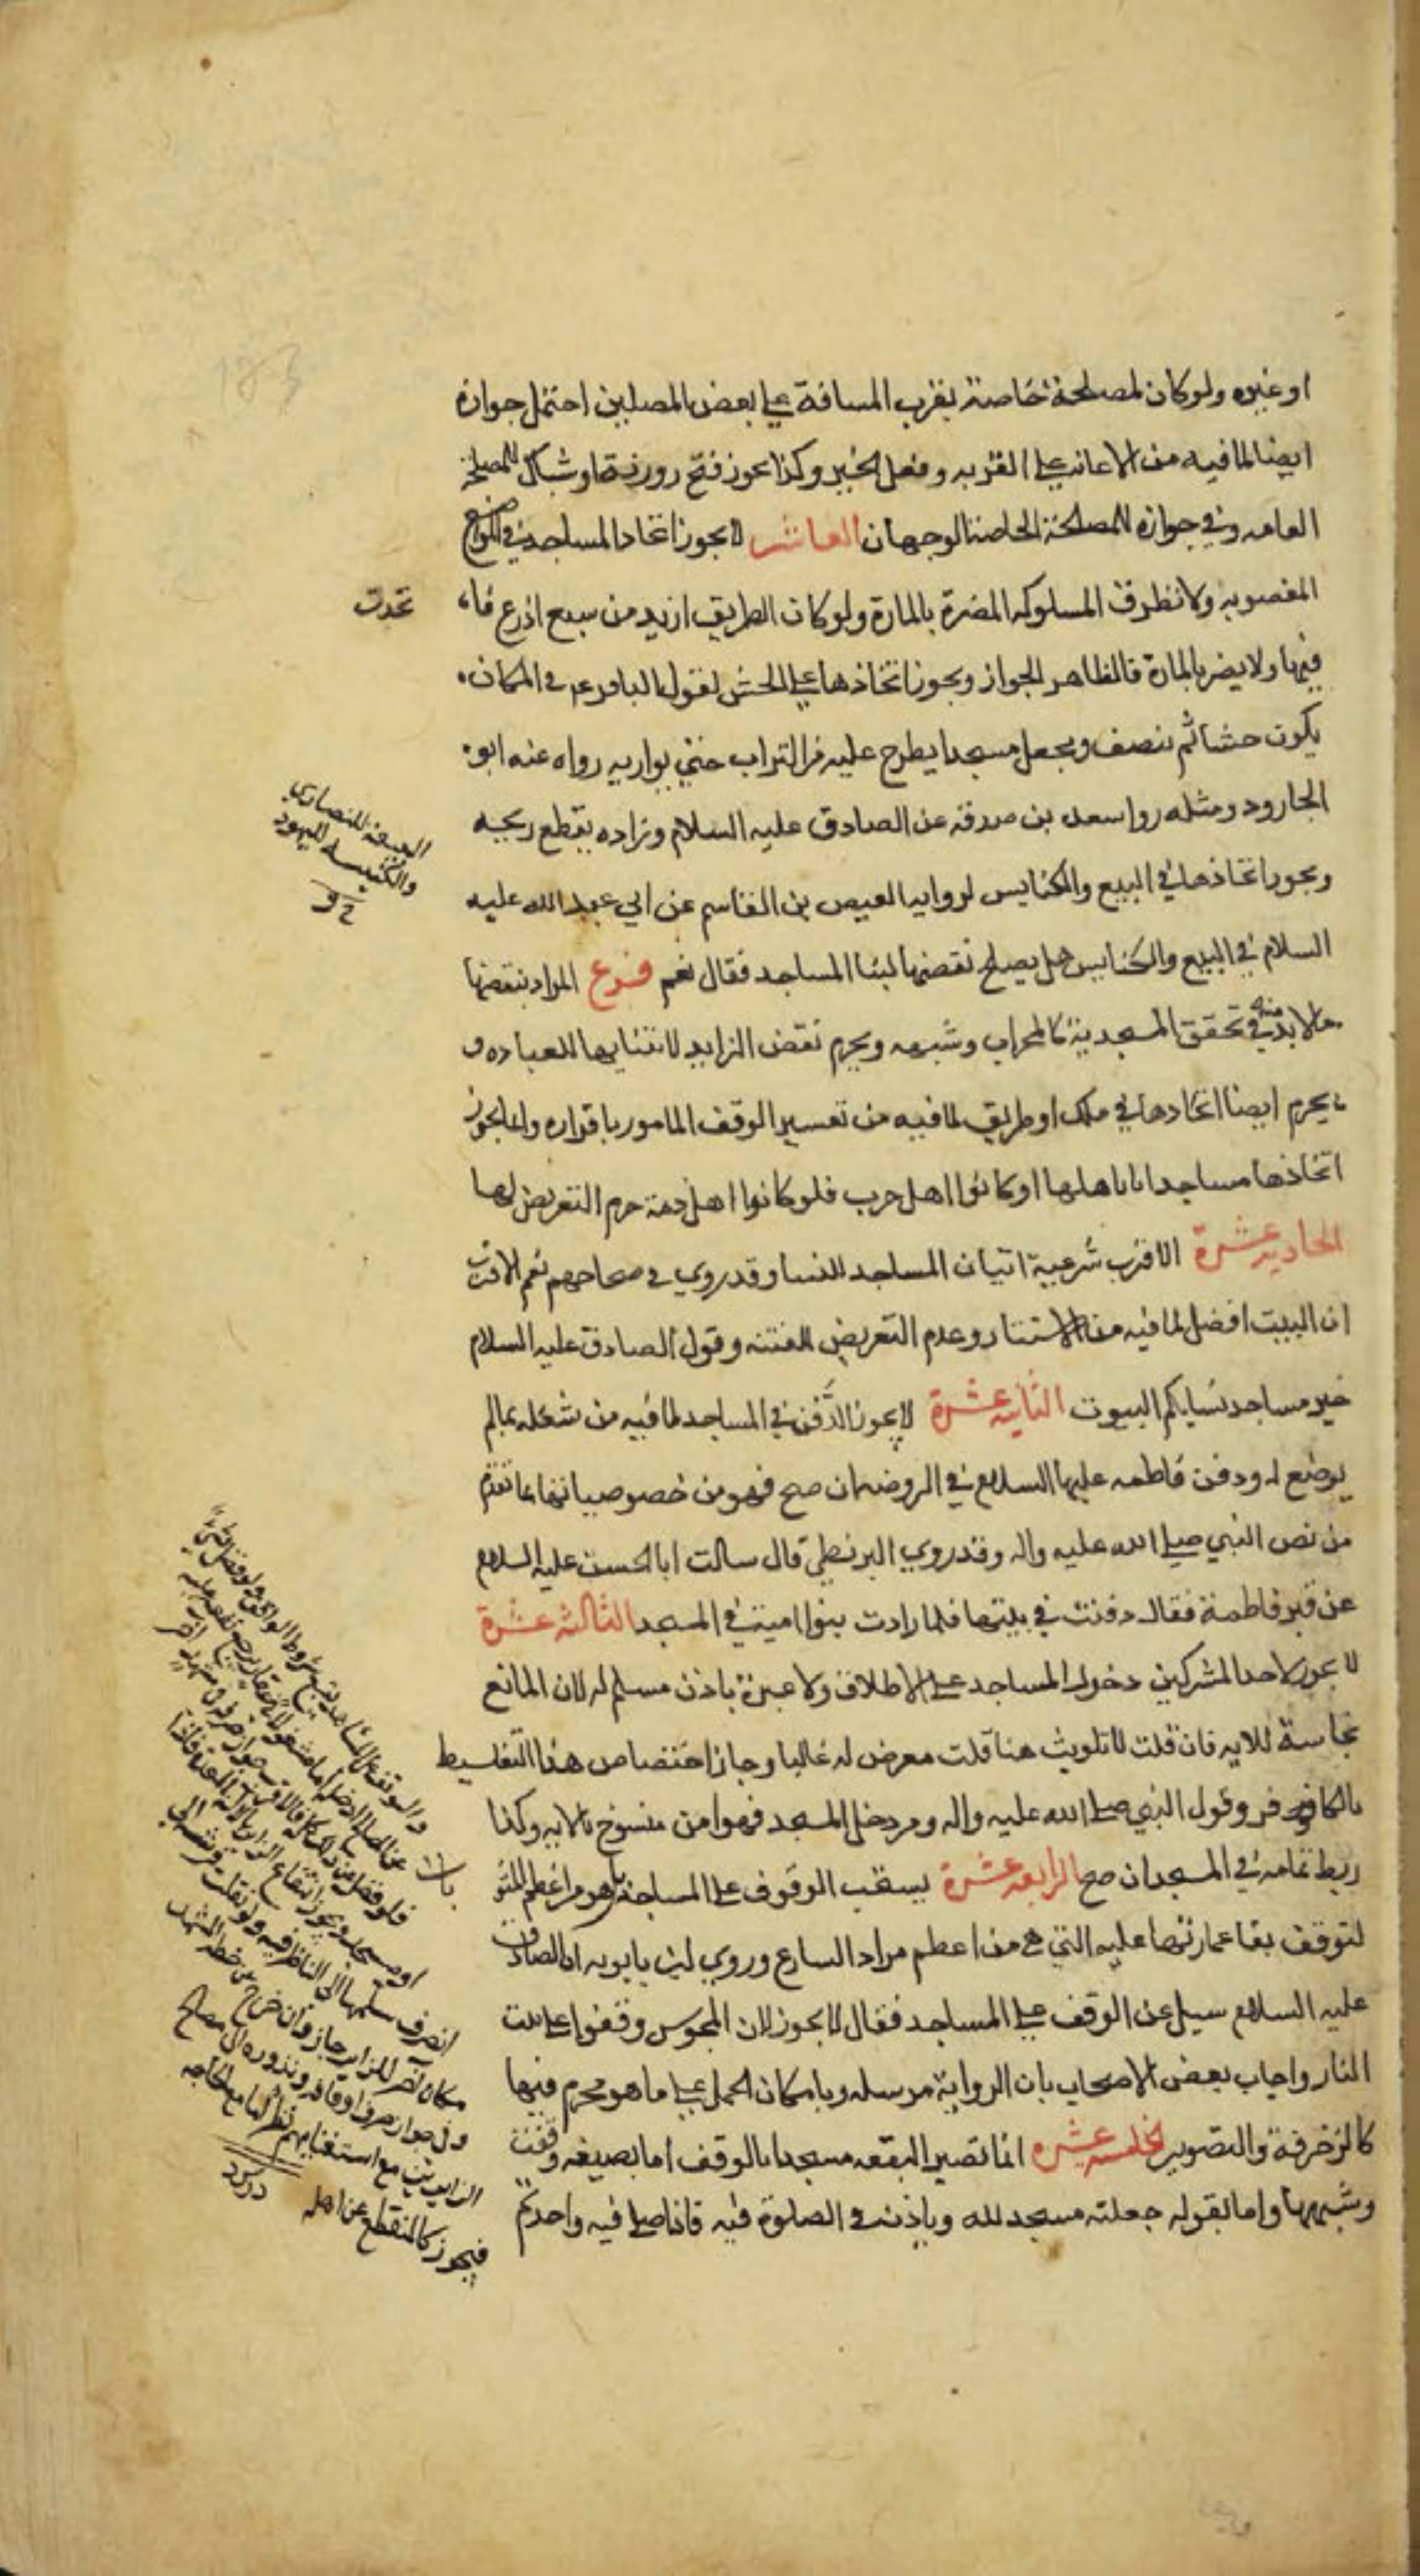 183
او غيره ولو كان لمصلحة خاصة بقرب المسافة على بعض المصلين احتمل جوازه
ايضا لما فيه من الاعانة على القربه وفعل الخير وكذا يجوز فتح روزنة او شباك للمصلحة
العامه وفي جوازه للمصلحة الخاصة الوجهان العاشر لا يجوز اتخاذ المساجد في المواضع
المغصوبه ولا فى الطرق المسلوكه المضرة بالمارة ولو كان الطريق ازيد من سبع اذرع فا
تخذت
فيها ولا يضر بالمارة فالظاهر الجواز ويجوز اتخاذها على الحش لقول الباقر عم في المكان
يكون حشا ثم ينصف ويجعل مسجدا يطرح عليه من التراب حتى يواريه رواه عنه ابو
الجارود ومثله روا مسعده بن صدقه عن الصادق عليه السلام وزاده يقطع ريحه
ويجوز اتخاذها في البيع والكنايس لروايه العيص بن القاسم عن ابي عبد الله عليه
البيعة للنصارى
والكنيسه لليهود
السلام في البيع والكنايس هل يصلح نقضها لبنا المساجد فقال نعم فرع المراد بنقضها
ما لا بد منه في تحقق المسجدية كالمحراب وشبهه ويحرم نقض الزايد لابتنايها للعباده و
يحرم ايضا اتخاذها في ملك او طريق لما فيه من تغيير الوقف المامور باقراره وانما يجوز
اتخاذها مساجد اذا باد اهلها او كانوا اهل حرب فلو كانوا اهل ذمة حرم التعرض لها
الحاديه عشرة الاقرب شرعية اتيان المساجد للنسا وقد روي في صحاحهم نعم الاقرب
ان البيت افضل لما فيه من الاستتار وعدم التعريض للفتنه وقول الصادق عليه السلام
خير مساجد نسايكم البيوت الثانيه عشرة لا يجوز الدفن في المساجد لما فيه من شغله بما لم
يوضع له ودفن فاطمه عليها السلام في الروضه ان صح فهو من خصوصياتها بما تقدم
من نص النبي صلى الله عليه واله وقد روي البزنطي قال سالت ابا الحسن عليه السلام
عن قبر فاطمة فقال دفنت في بيتها فلما زادت بنوا امية في المسجد الثالثه عشرة
لا يجوز لاحد المشركين دخول المساجد على الاطلاق ولا عبرة باذن مسلم له لان المانع
نجاسة للايه فان قلت لا تلويث هنا قلت معرض له غالبا وجاز اختصاص هذا التغليظ
بالكافر وقول النبي صلى الله عليه واله ومن دخل المسجد فهو امن منسوخ بالايه وكذا
ربط ثمامه في المسجد ان صح الرابعه عشرة يستحب الوقوف على المساجد بل هو من اعظم المثو
بات
لتوقف بقا عمارتها عليه التي هي من اعظم مراد الشارع وروي ابن بابويه ان الصادق
عليه السلام سيل عن الوقف على المساجد فقال لا يجوز لان المجوس وقفوا على بيت
النار واجاب بعض الاصحاب بان الرواية مرسله وبامكان الحمل على ما هو محرم فيها
كالزخرفة والتصوير الخامسه عشره انما تصير البقعه مسجدا بالوقف اما بصيغه وقفت
وشبهها واما بقوله جعلته مسجد لله وياذن في الصلوة فيه فاذا صلى فيه واحد تم
والوقف على المشاهد يتبع شروط الواقف
او مسجد ويجوز انتفاع الزاير
انصرف سلمها الى الناظر فيه ولو نقلت
مكان آخر للزاير جاز وان خرج عن خطه المشهد
وفي جواز صرف اوقافه ونذوره الى مصالح
الزايرين مع استغنايهم نظر اما مع الحاجه
فيجوز كالمنقطع عن اهله